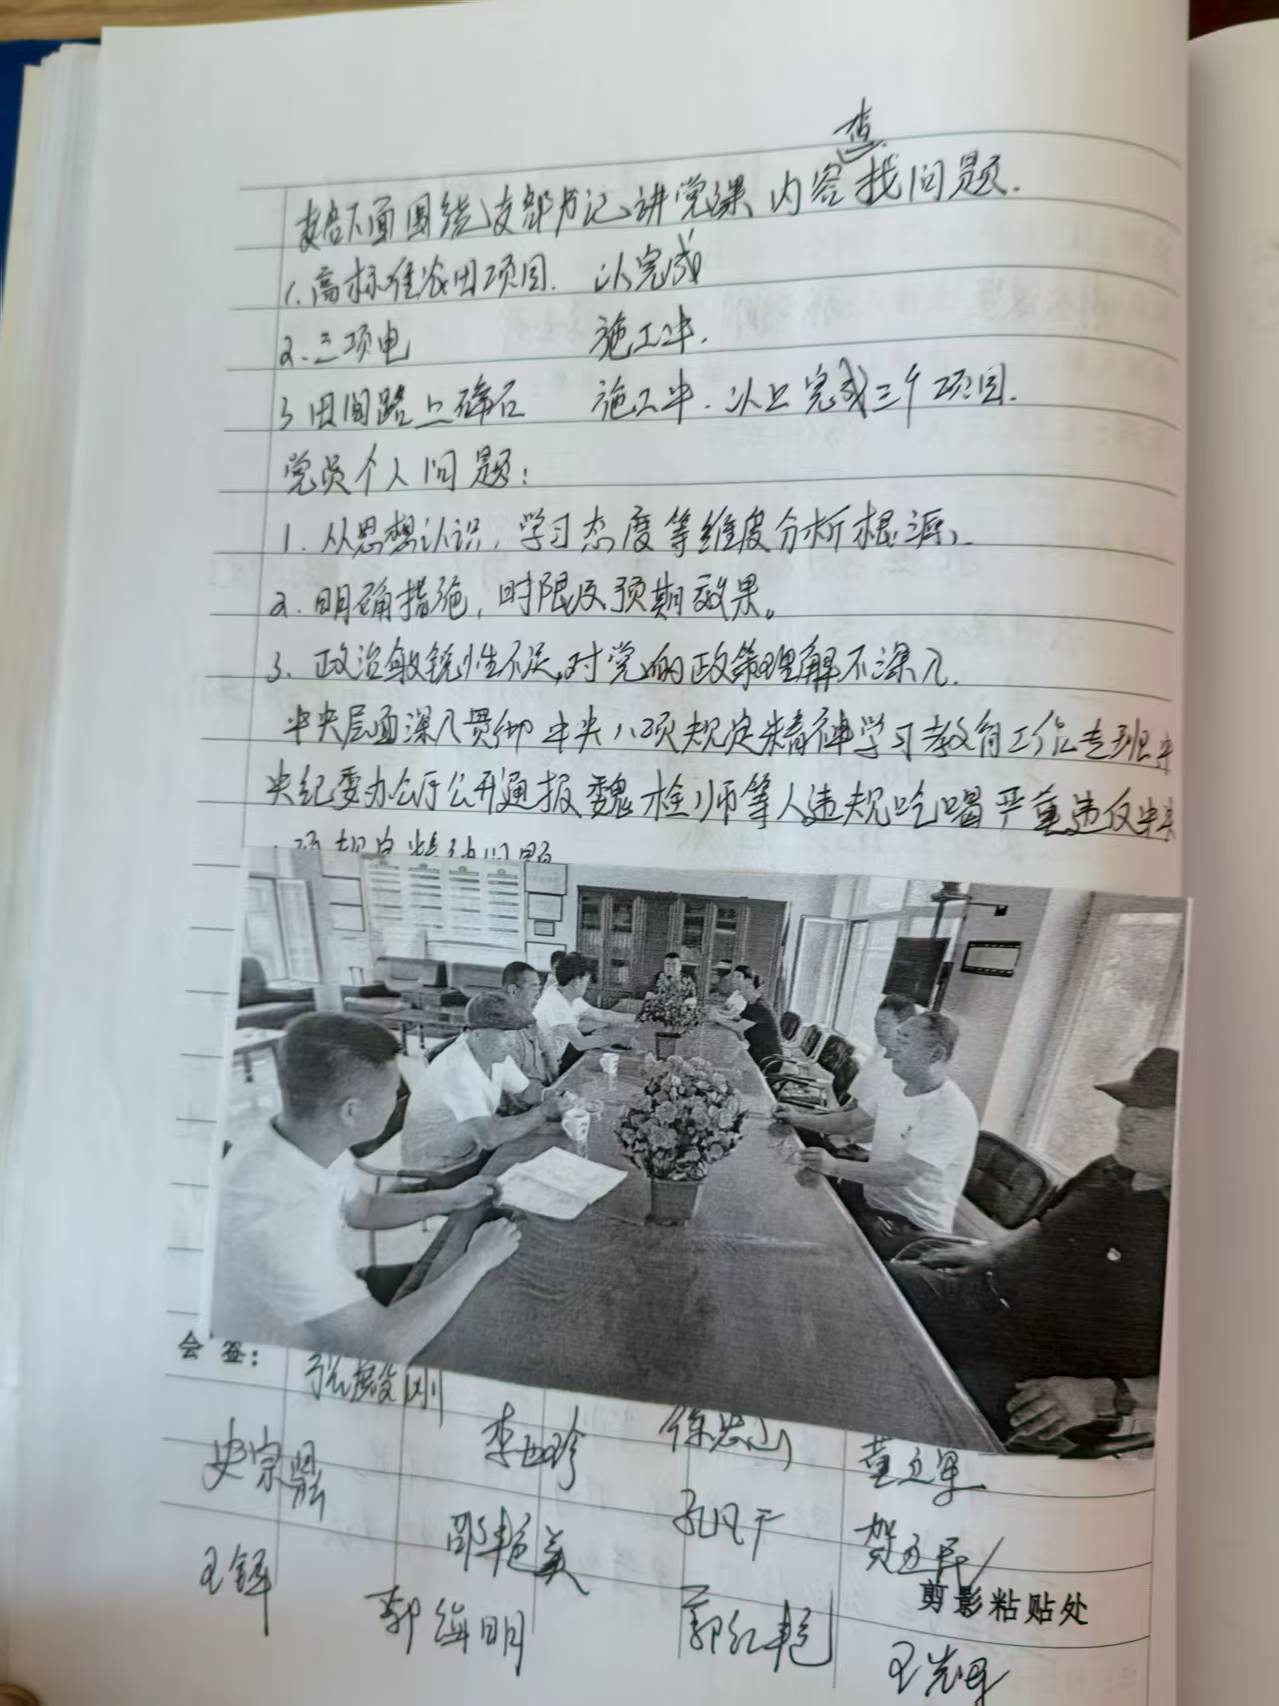 查
支部下面围绕支部书记讲党课内容找问题.
1.高标准农田项目. 以完成
2.三项电 施工中.
3田间路上碎石 施工中.以上完成三个项目.
党员个人问题:
1.从思想认识,学习态度等维度分析根源,
2.明确措施,时限及预期效果。
3.政治敏锐性不足,对党的政策理解不深入.
中央层面深入贯彻中央八项规定精神学习教育工作专班中
央纪委办公厅公开通报魏检师等人违规吃喝严重违反中央
项规定精神问题
会签:
张振刚
史宗 李 珍 徐宏山 董立军
王铎 邵艳美 孔凡广 贺立民
剪影粘贴处
郭海明 郭红艳 王光军